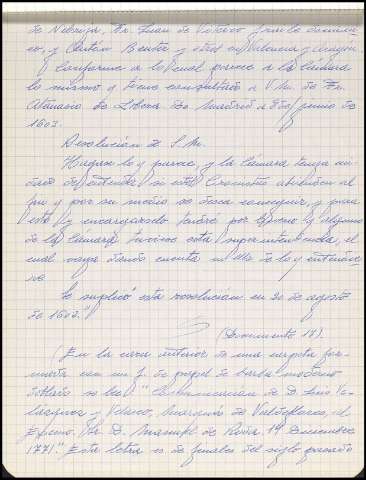 de Nebrija, Fr. Juan de Vitoria fraile domini-
co, y Antón Beuter y otros en Valencia y Aragón
y conforme a lo cual parece a la Cámara
lo mismo q tiene consultado a V. M. de Fr.
Atanasio de Lobera. De Madrid a 8 de junio de
1602.
Resolución de S. M.
Hágase lo q parece, y la Cámara tenga cui-
dado de entender si estos Cronistas atienden al
fin q por su medio se desea conseguir, y para
esto y encargarselo tendré por bueno q alguno
de la Cámara tuviese esta superintendencia, el
cual vaya dando cuenta en ella de lo q entendie-
re
Se suplicó esta resolución en 20 de agosto
de 1602."
(Documento 18).
(En la cara interior de una carpeta for-
mada con un f. de papel de barba moderno
doblado se lee: " de D. Luis Ve-
lázquez y Velasco, Marqués de Valdeflores, el
Excmo. Sr. D. Manuel de Roda 14 Diciembre
1771." Esta letra es de finales del siglo pasado